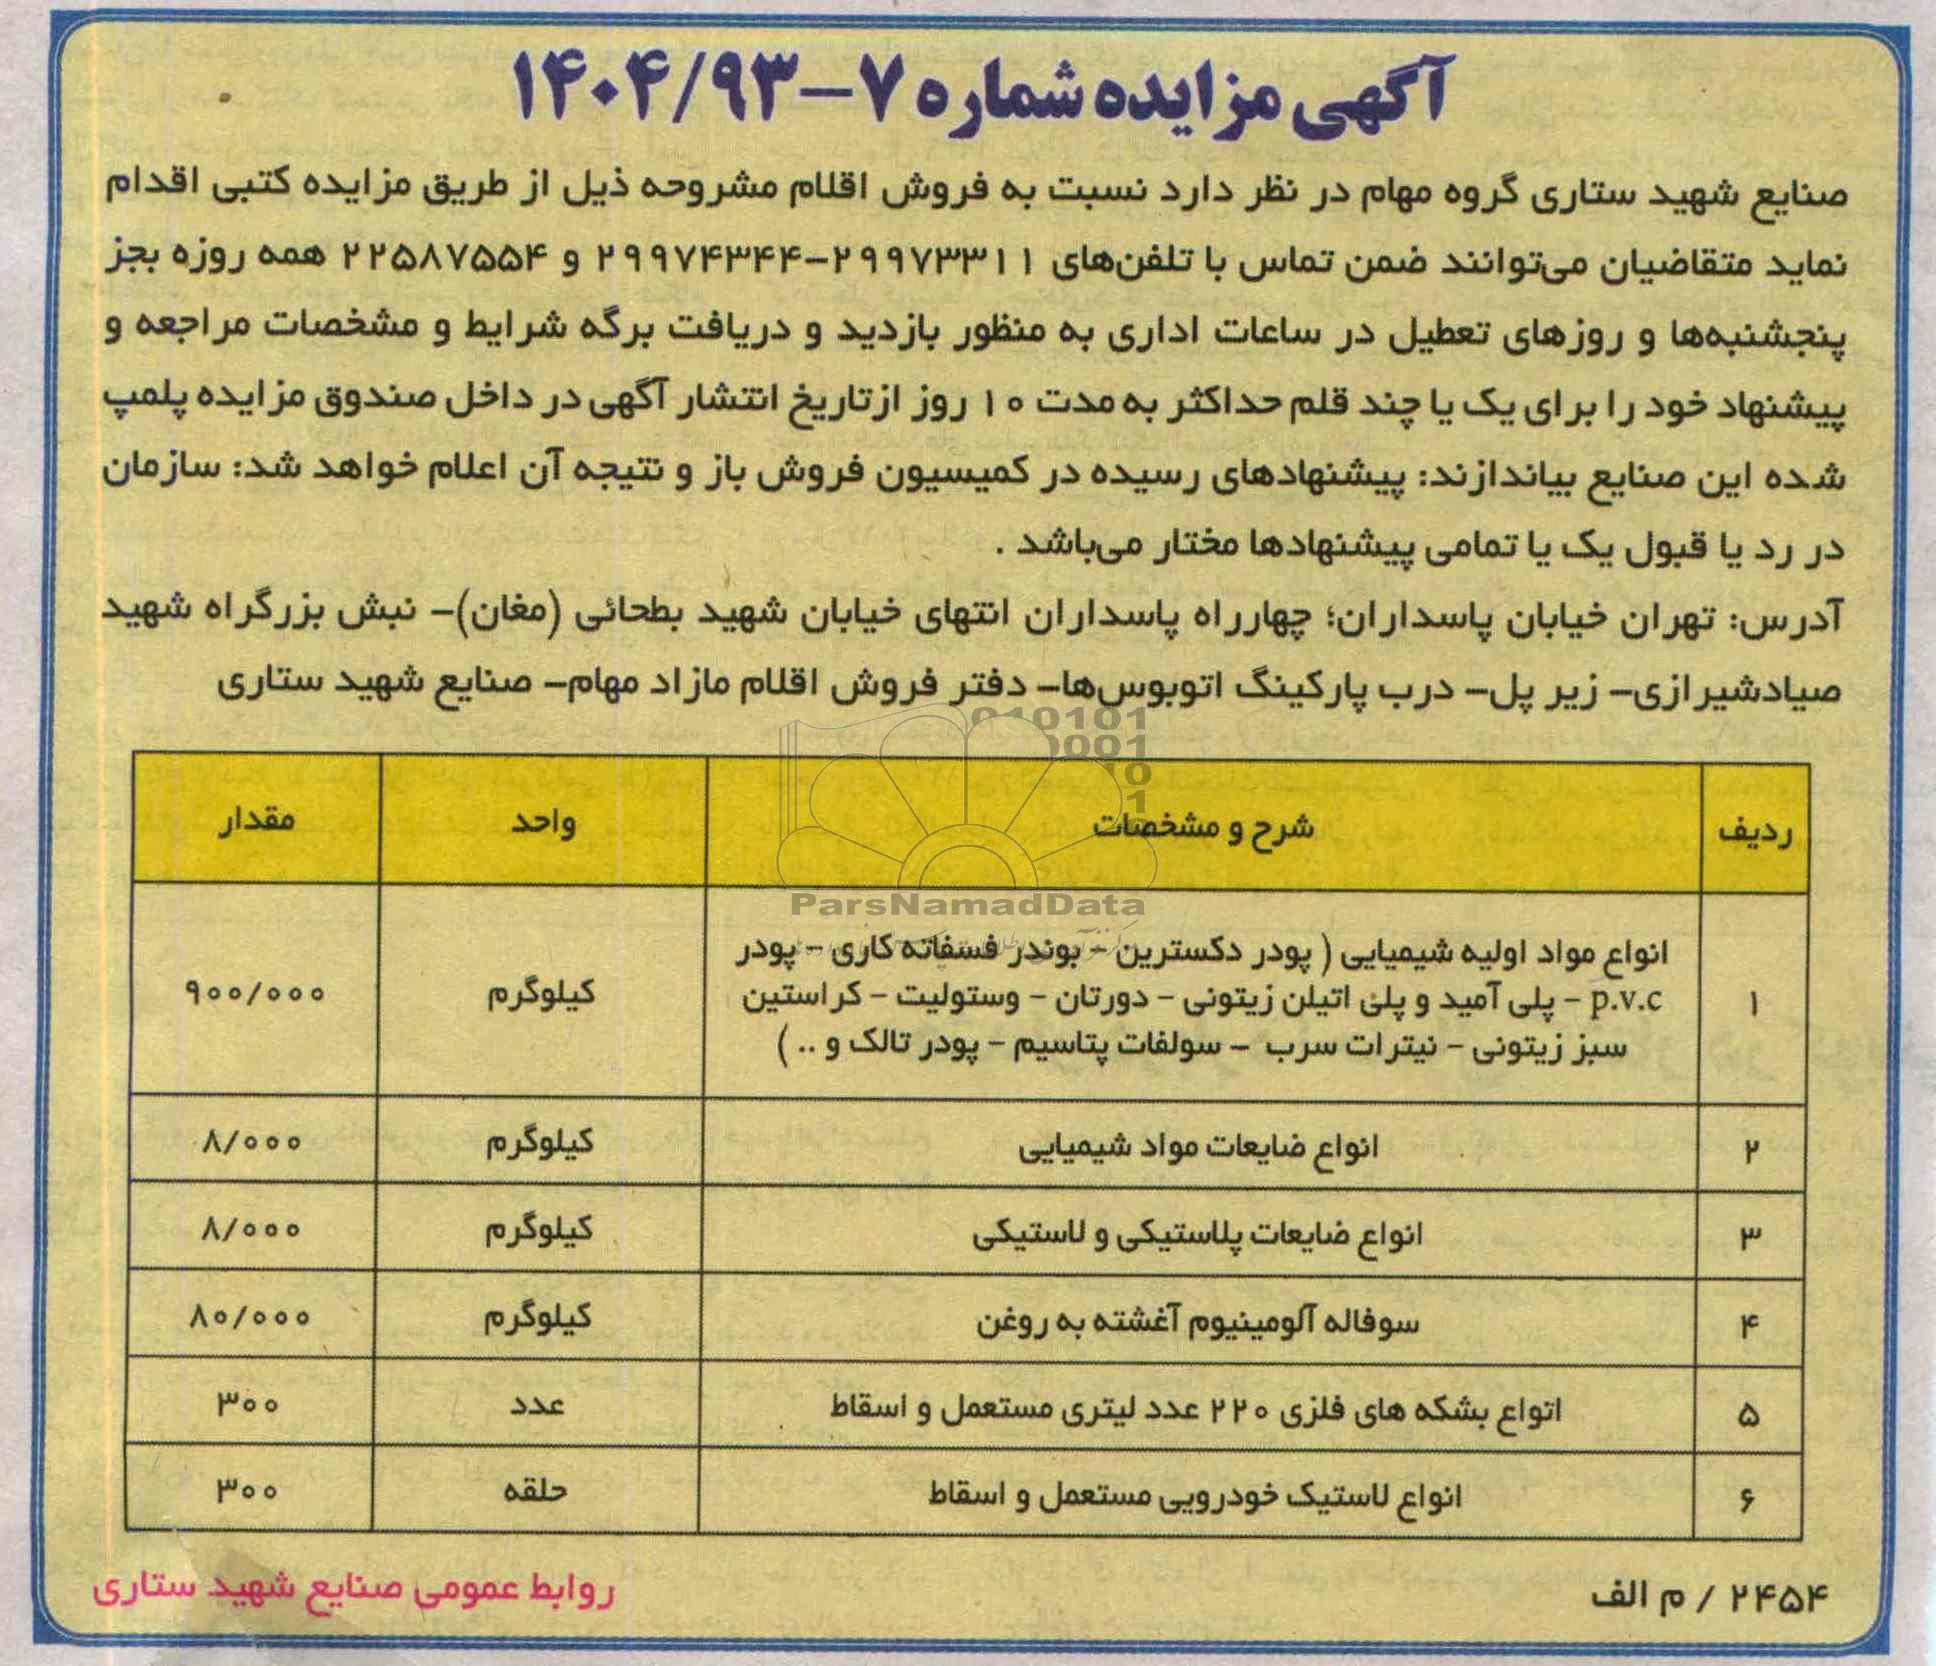 آگهی مزایده شماره ۷-۱۴۰۴/۹۳
صنایع شهید ستاری گروه مهام در نظر دارد نسبت به فروش اقلام مشروحه ذیل از طریق مزایده کتبی اقدام
نماید متقاضیان می‌توانند ضمن تماس با تلفن‌های ۲۹۹۷۳۳۱۱-۲۹۹۷۴۳۴۴ و ۲۲۵۸۷۵۵۴ همه روزه بجز
پنجشنبه‌ها و روزهای تعطیل در ساعات اداری به منظور بازدید و دریافت برگه شرایط و مشخصات مراجعه و
پیشنهاد خود را برای یک یا چند قلم حداکثر به مدت ۱۰ روز ازتاریخ انتشار آگهی در داخل صندوق مزایده پلمپ
شده این صنایع بیاندازند: پیشنهادهای رسیده در کمیسیون فروش باز و نتیجه آن اعلام خواهد شد: سازمان
در رد یا قبول یک یا تمامی پیشنهادها مختار می‌باشد .
آدرس: تهران خیابان پاسداران؛ چهارراه پاسداران انتهای خیابان شهید بطحائی (مغان)- نبش بزرگراه شهید
صیادشیرازی- زیر پل- درب پارکینگ اتوبوس‌ها- دفتر فروش اقلام مازاد مهام- صنایع شهید ستاری
ردیف شرح و مشخصات واحد مقدار
۱ انواع مواد اولیه شیمیایی ( پودر دکسترین - بوندر فسفاته کاری - پودر
p.v.c - پلی آمید و پلی اتیلن زیتونی - دورتان - وستولیت - کراستین
سبز زیتونی - نیترات سرب - سولفات پتاسیم - پودر تالک و .. ) کیلوگرم ۹۰۰/۰۰۰
۲ انواع ضایعات مواد شیمیایی کیلوگرم ۸/۰۰۰
۳ انواع ضایعات پلاستیکی و لاستیکی کیلوگرم ۸/۰۰۰
۴ سوفاله آلومینیوم آغشته به روغن کیلوگرم ۸۰/۰۰۰
۵ اتواع بشکه های فلزی ۲۲۰ عدد لیتری مستعمل و اسقاط عدد ۳۰۰
۶ انواع لاستیک خودرویی مستعمل و اسقاط حلقه ۳۰۰
۲۴۵۴ / م الف
روابط عمومی صنایع شهید ستاری
ParsNamadData